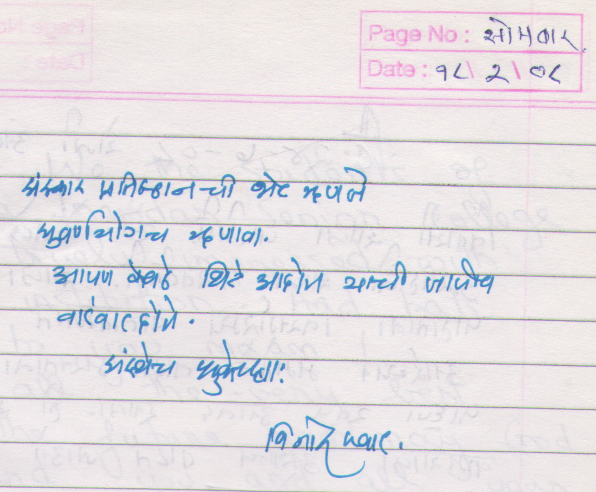 Page No : सोमवार.
Date : १८\ २ \ ०८
संस्कार प्रतिष्ठान ची भेट म्हणजे
सुवर्णयोगच म्हणावा.
आपण केवढे थिटे आहोत याची जाणीव
वारंवार होते.
संतोष शुभेच्छा!
विनोद पवार.